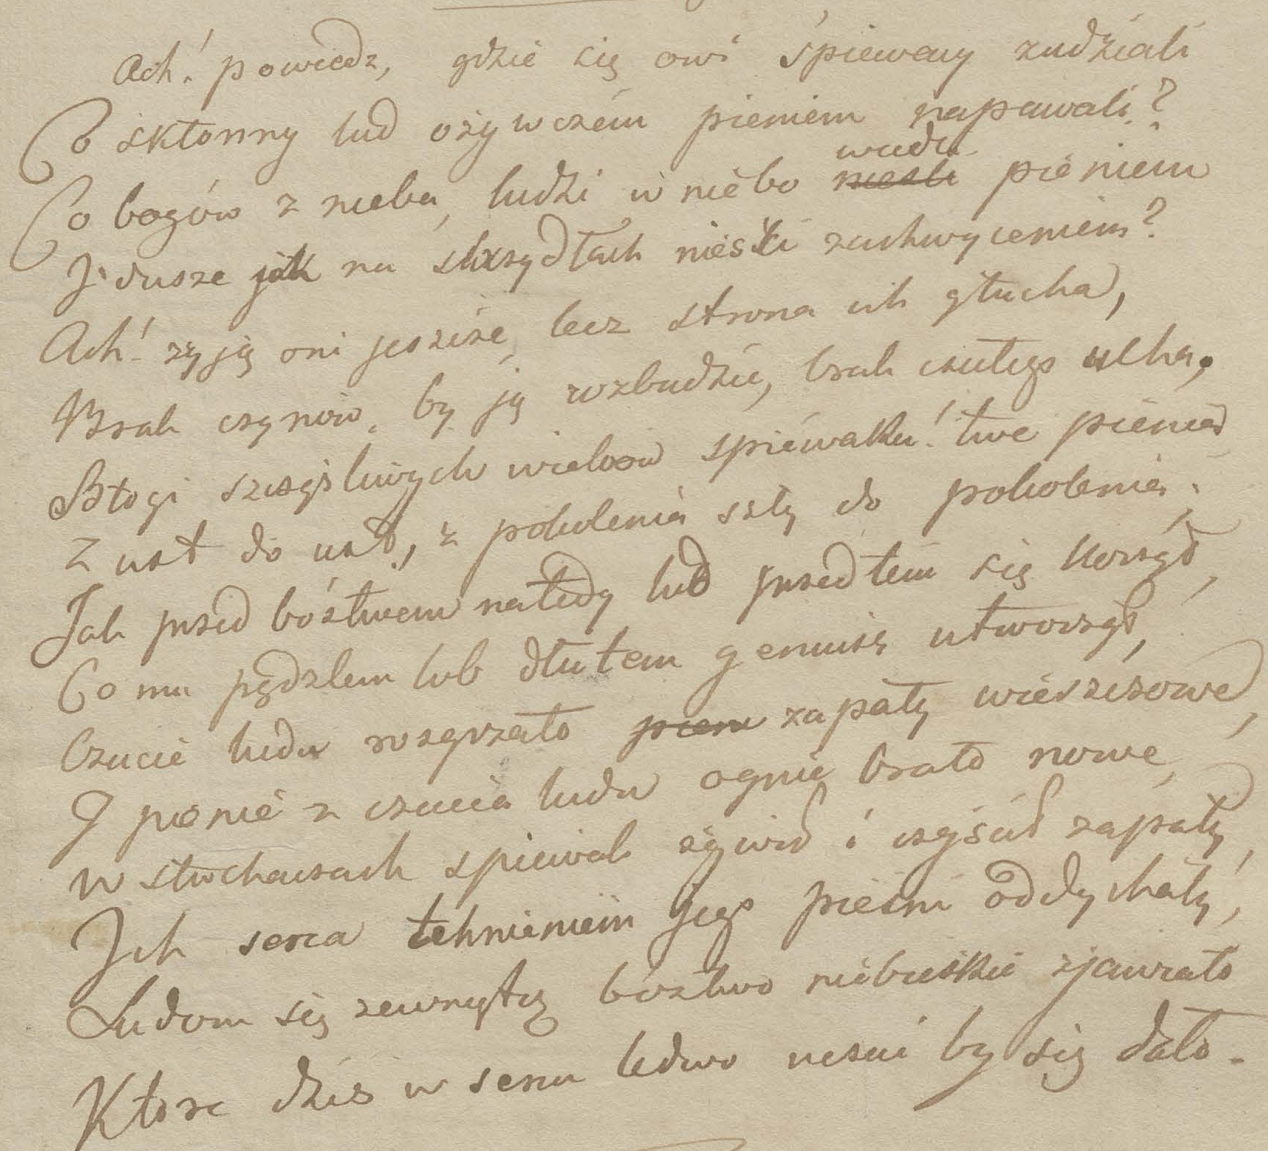 Ach! powiedz, gdzie się owi śpiewacy zudziali
Co skłonny lud ożywczém pieniem napawali?
wiedli
Co bogów z nieba, ludzi w niebo nieśli pieniem
I dusze jak na skrzydłach nieśli zachwyceniem?
Ach! żyją oni jeszcze, lecz strona ich głucha,
Brak czynów, by ją rozbudzić, brak czułego ucha,
Błogi szczęśliwych wieków śpiéwaku! twe pienia
Z ust do ust, z pokolenia szły do pokolenia.
Jak przed bóstwem natedy lud przed tém się korzył,
Co mu pędzlem lub dłutem geniusz utworzył,
Czucie ludu rozgrzało pieni zapały wieszczowe,
I pienie z czucia ludu ognie brało nowe,
W słuchaczach spiewak żywił i czyścił zapały,
Ich serca tchnieniem jego pieśni oddychały,
Ludom się zewnątrz bóztwo niebieskie zjawiało
Które dziś w sercu ledwo uczuć by się dało.